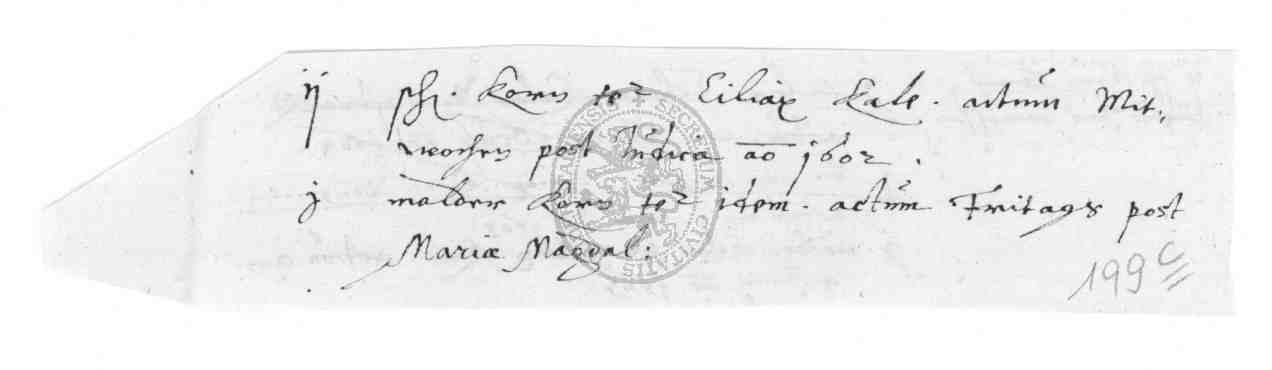 ij schl. Korn ter Ciliax Kale. actum Mit:
wochen post Judica ao 1602.
j malder Korn ter idem. actum Fritags post
Mariæ Magdal:
199 C
SECRETUM CIVITATIS